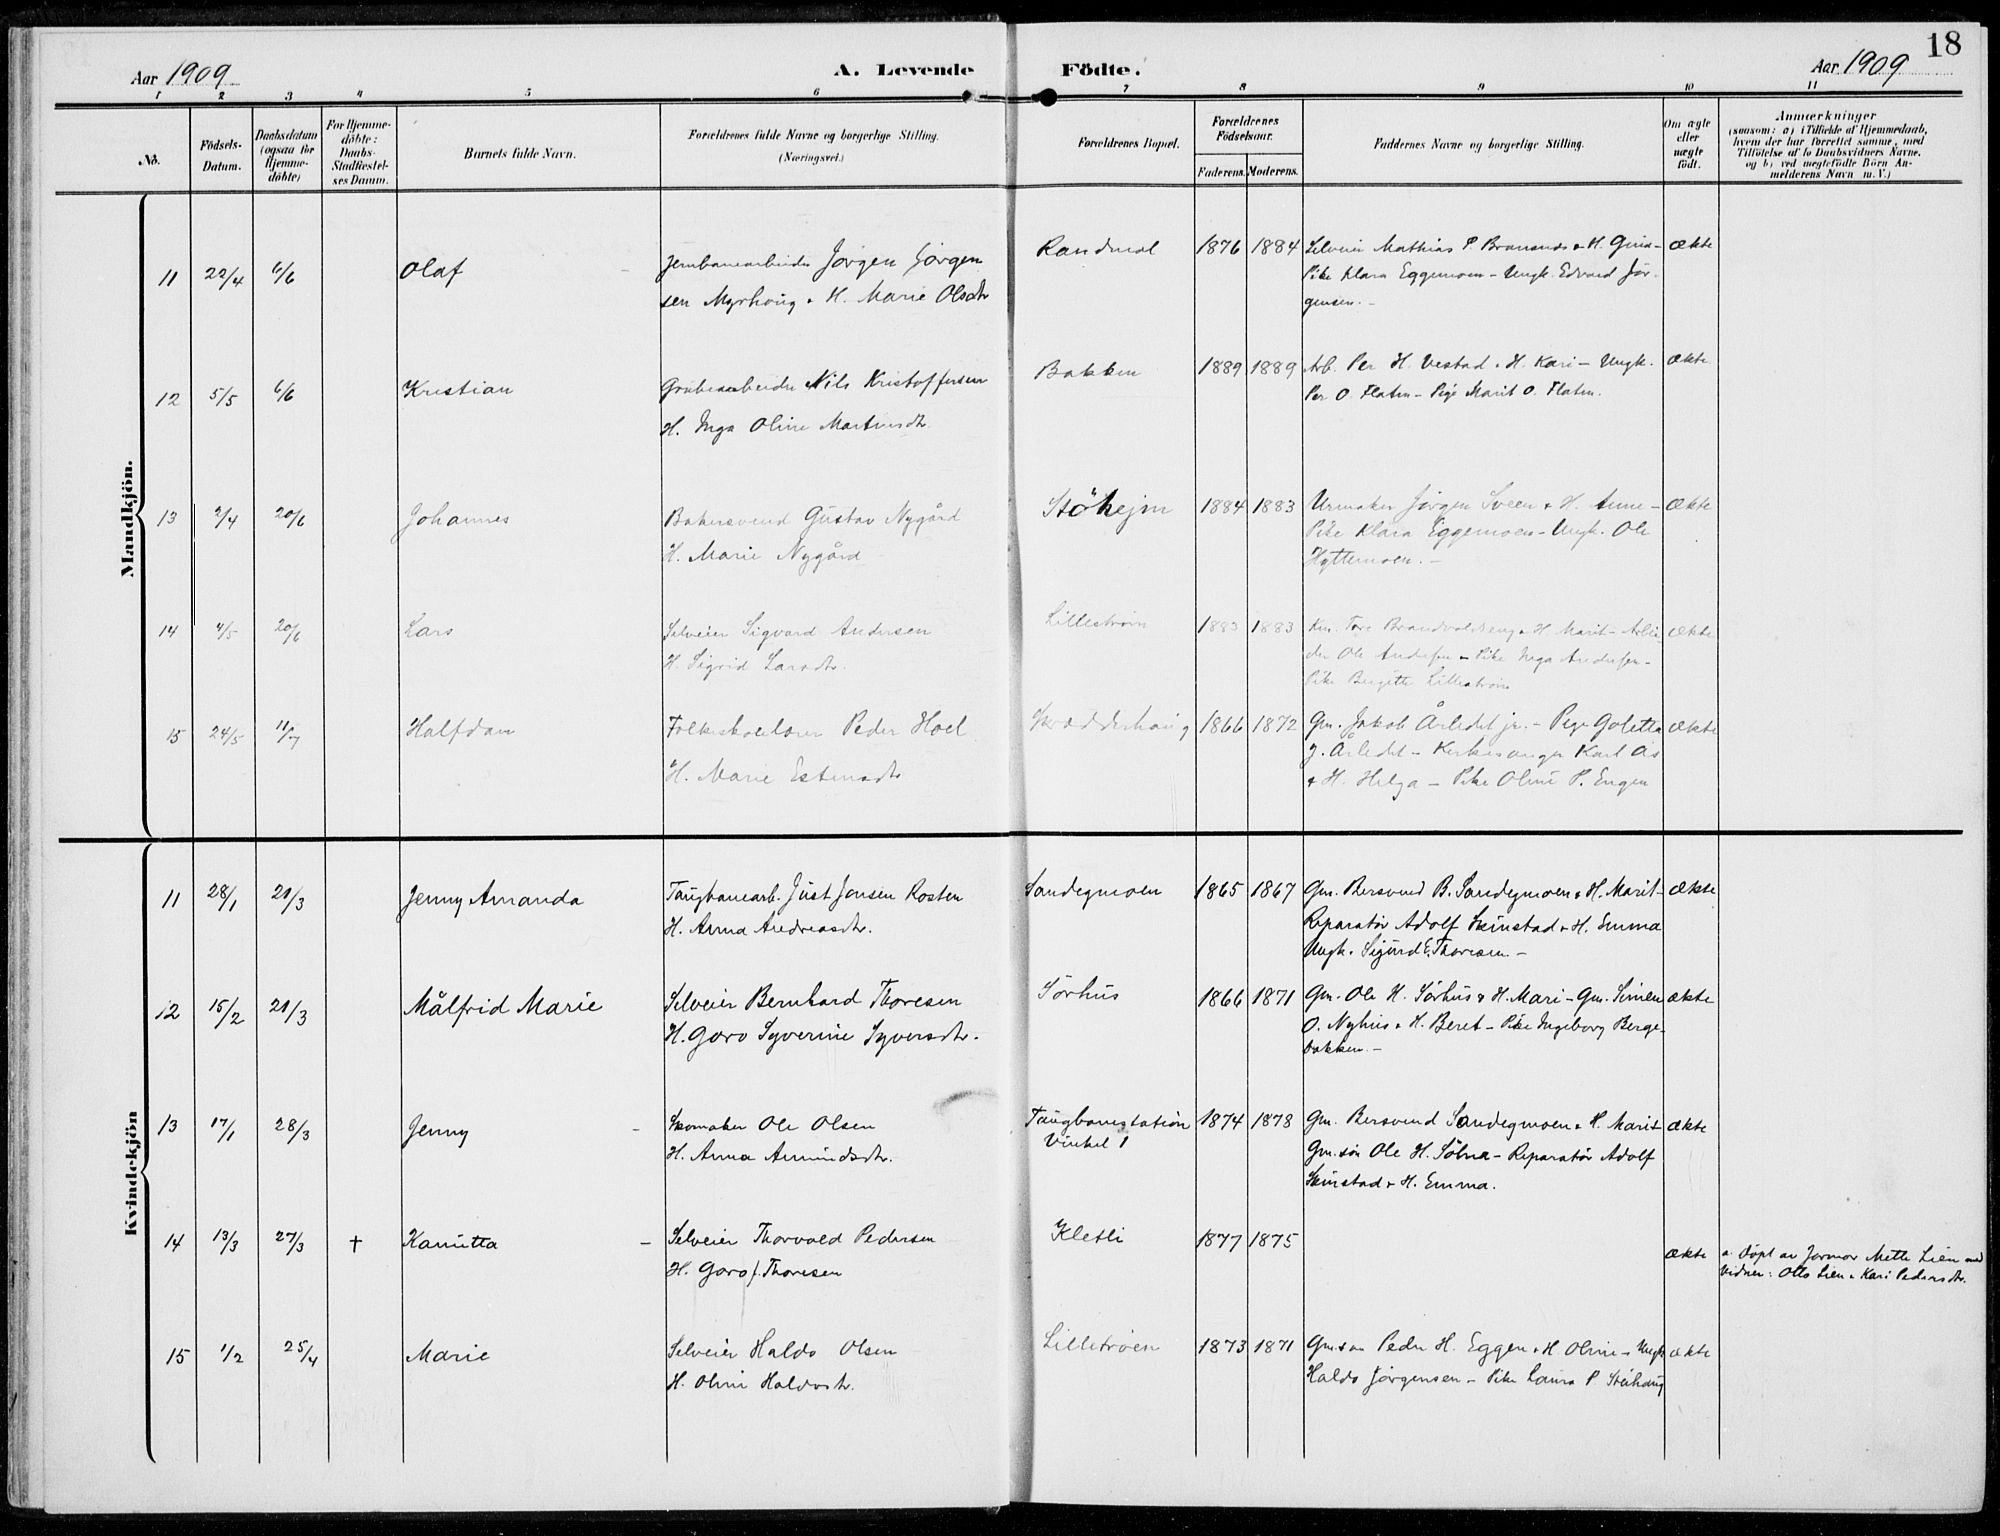 18
Aar 1909 A. Levende Födte. Aar 1909
1 2 3 4 5 6 7 8 9 10 11
No.
Födsels-
Datum.
Daabsdatum
(ogsaa for
Hjemme-
döbte)
For Hjemme-
döbte:
Daabs-
Stadfæstel-
ses Datum.
Barnets fulde Navn.
Forældrenes fulde Navne og borgerlige Stilling.
(Næringsvei.)
Forældrenes Bopæl.
Forældrenes
Födselsaar.
Faderens. Moderens.
Faddernes Navne og borgerlige Stilling.
Om ægte
eller
uægte
födt.
Anmærkninger
(saasom: a) i Tilfælde af Hjemmedaab,
hvem der har forrettet samme, med
Tilföielse af to Daabsvidners Navne.
og b) ved uægtefödte Börn An-
melderens Navn m. V.)
Mandkjön.
11 22/4 6/6 Olaf Jernbanearbeider Jørgen Jørgen Randmæl 1876 1884 Selveier Mathias P. & H. Gina – Ækte
sen Myrhaug & H. Marie Olsdtr Pike Klara Eggemoen – Ungk. Edvard Jør-
gensen. –
12 5/5 6/6 Kristian Grubearbeider Nils Kristoffersen Bakken 1889 1889 Arb. Per H. Vestad & H. Kari – Ungk. Ækte
H. Inga Oline Martinsdtr. Per O. Flaten – Pige Marit O. Flaten.
13 2/4 20/6 Johannes Bakersvend Gustav Nygård Stöhejm 1884 1883 Urmaker Jørgen Sveen & H. Anne – Ækte
H. Marie Nygård Pike Klara Eggemoen – Ungk. Ole
Hyttemoen. –
14 4/5 20/6 Lars Selveier Sigvard Andersen Lillestrøm 1883 1883 Tore & H. Marit – Arbei Ækte
H. Sigrid Larsdtr. der Ole Andersen – Pike Inga Andersen –
Pike Birgitte Lillestrøm
15 24/5 11/7 Halfdan Folkeskolelærer Peder Hoel Skrædderhaug 1866 1872 Gm. Jakob Årledet jr. – Pige Goletta Ækte
H. Marie Estensdtr J. Årledet – Kirkesanger Karl Ås
& H. Helga – Pike Oline P. Engen
Kvindekjön
11 28/1 21/3 Jenny Amanda Taugbanearb. Just Jensen Rosten Sandegmoen 1865 1867 Gm. Bersvend B. Sandegmoen & H. Marit – Ækte
H. Anna Andreasdtr. Reparatør Adolf Skinstad & H. Emma
Ungk. Sigurd E. Thoresen –
12 15/2 21/3 Målfrid Marie Selveier Bernhard Thoresen Sørhus 1866 1871 Gm. Ole H. Sørhus & H. Mari – Gm. Simen Ækte
H. Goro Syverine Syversdtr. O. Nyhus & H. Beret – Pike Ingeborg Berge-
bakken –
13 17/1 28/3 Jenny – Skomaker Ole Olsen Taugbanestation 1874 1878 Gm. Bersvend Sandegmoen & H. Marit Ækte
H. Anna Amundsdtr. Vinkel 1 Gm.søn Ole H. Sølna – Reparatør Adolf
Skinstad & H. Emma.
14 13/3 27/3 † Kanutta – Selveier Thorvald Pedersen Kletli 1877 1875
H. Goro f. Thoresen Ækte a. Døpt av Jormor Mette Lien med
Vidner: Otto Lien & Kari Pedersdtr.
15 1/2 25/4 Marie Selveier Haldo Olsen Lilletrøen 1873 1871 Gm.søn Peder H. Eggen & H. Oline – Ungk. Ækte
H. Oline Haldosdtr. Haldo Jørgensen – Pike Laura P. Steihaug